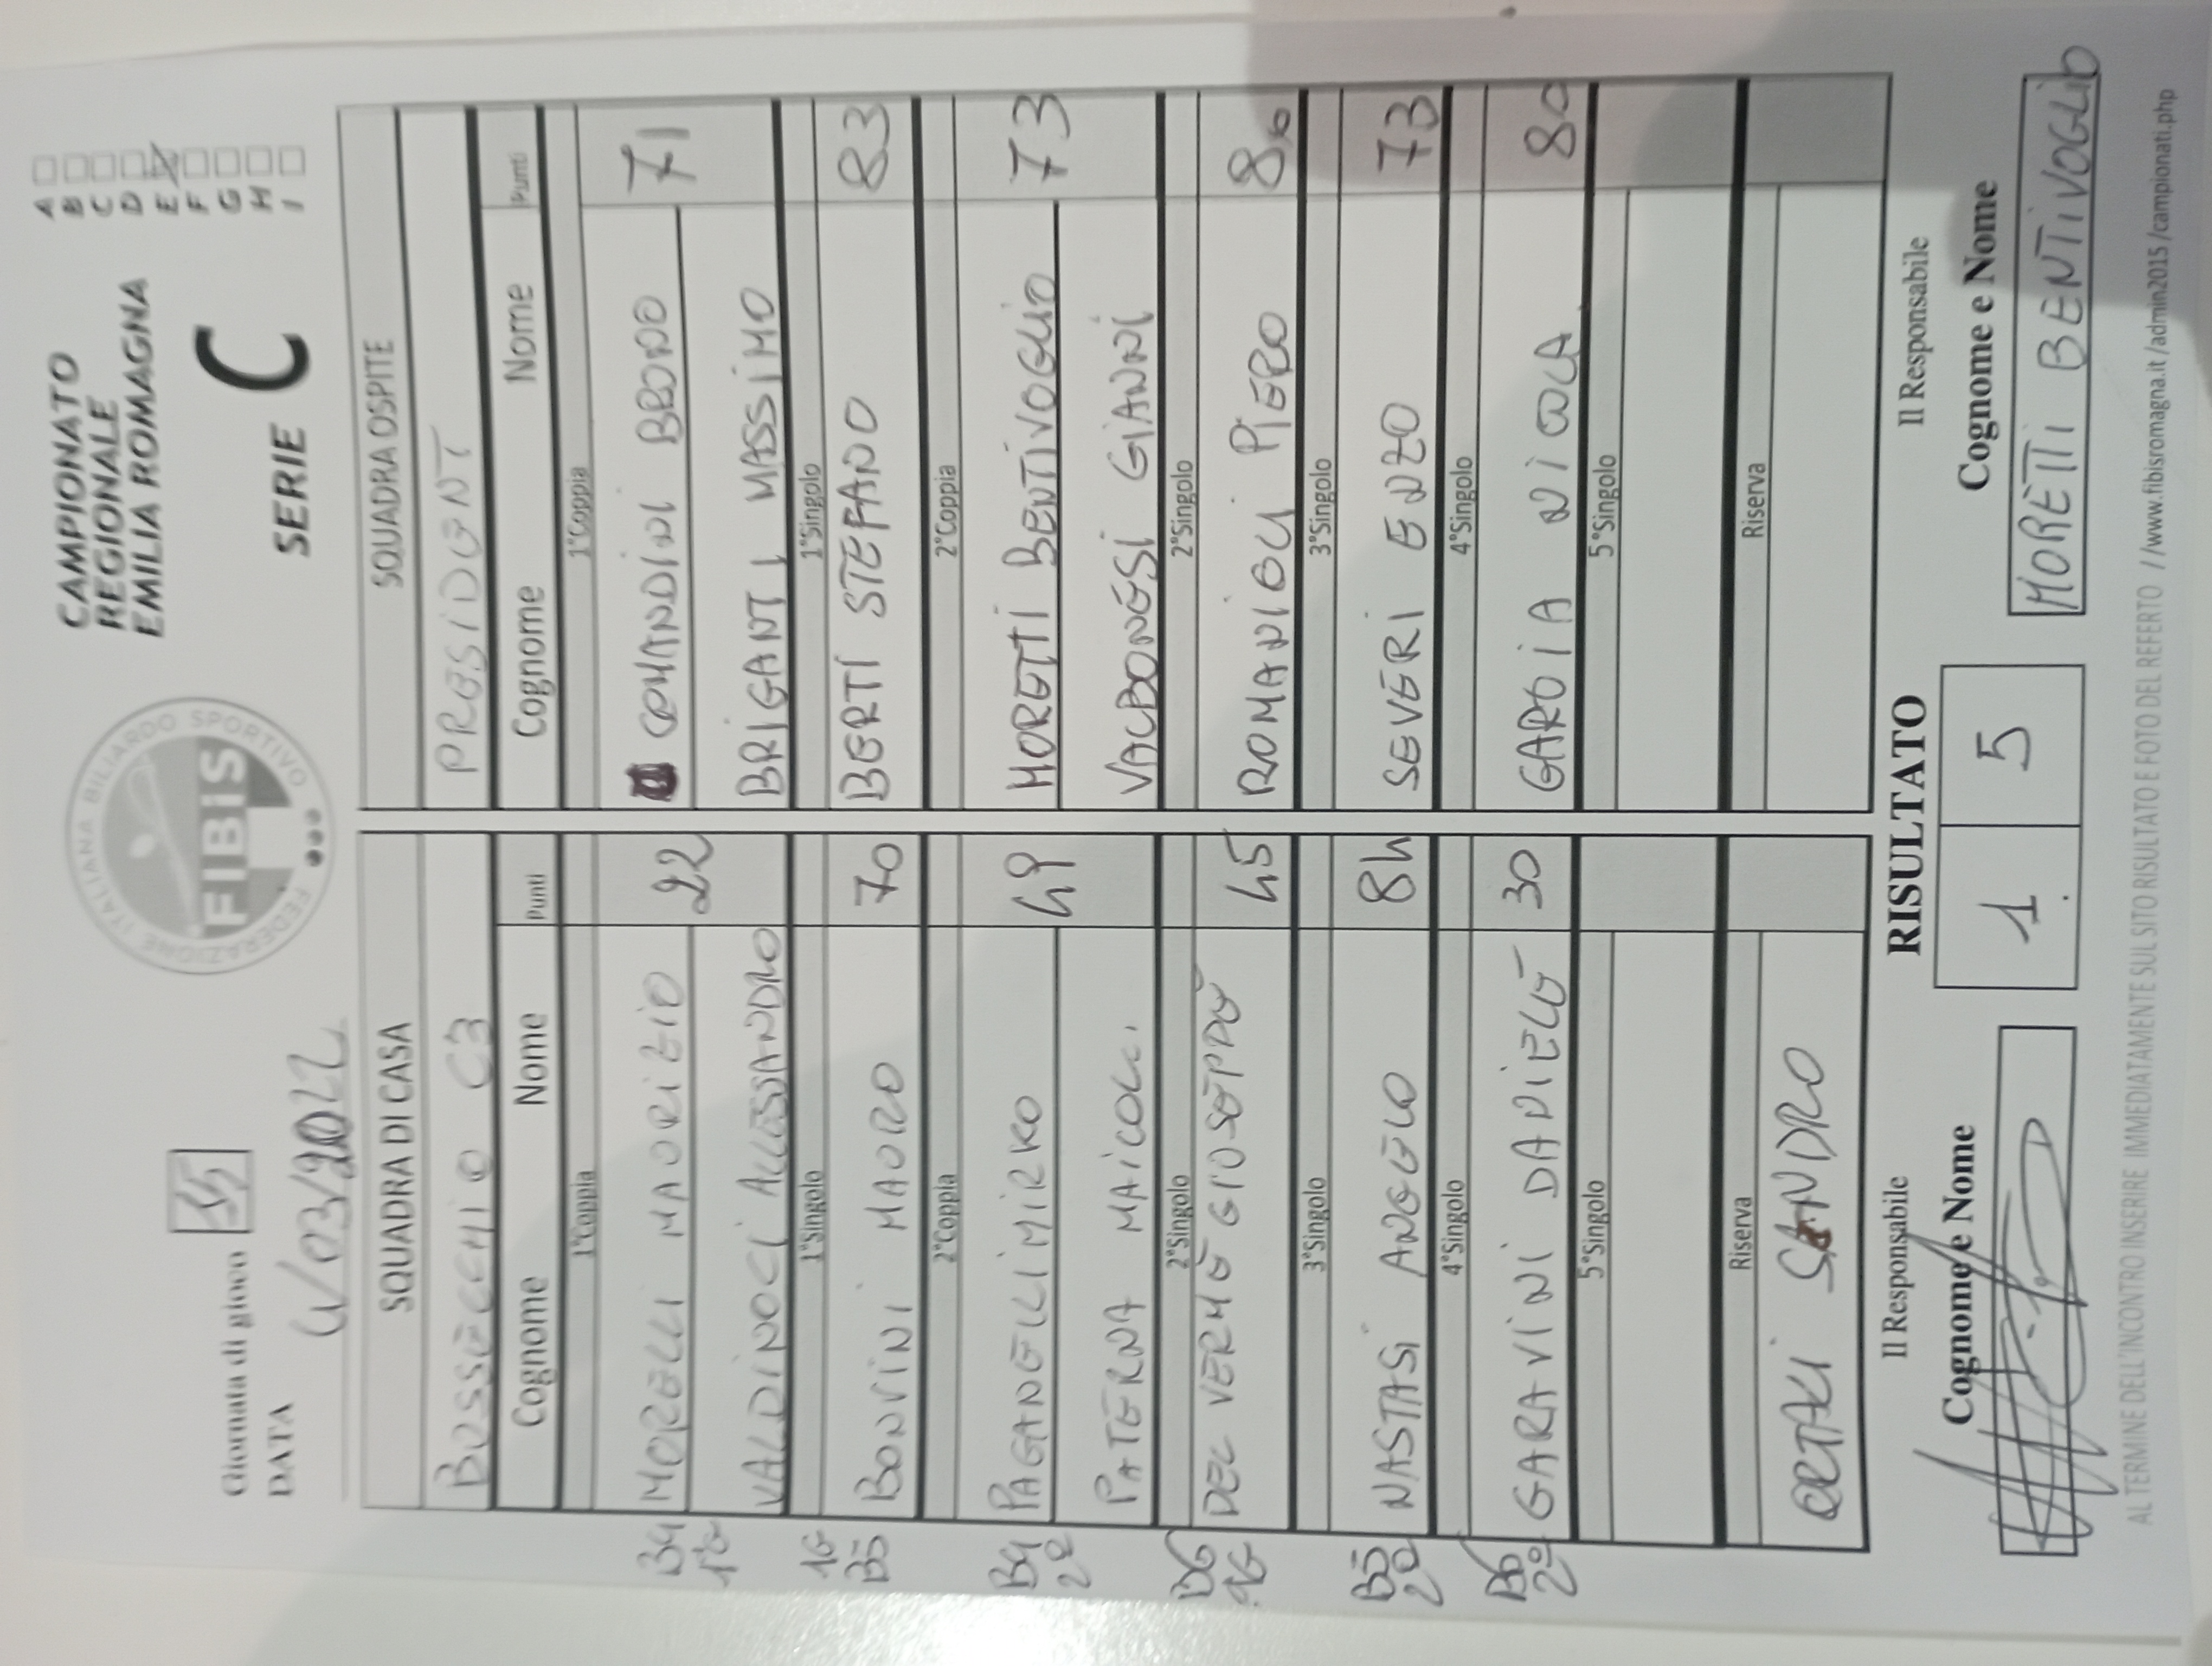 Giornata di gioco 15
DATA /03/2022
FEDERAZIONE ITALIANA BILIARDO SPORTIVO
FIBiS
CAMPIONATO
REGIONALE
EMILIA ROMAGNA
SERIE C
A
B
C
D
E
F
G
H
I
SQUADRA DI CASA SQUADRA OSPITE
BUSSECCHIO C3 PRESIDENT
Cognome Nome Punti Cognome Nome Punti
1°Coppia 1°Coppia
B4 MORELLI MAURIZIO 22 COMANDINI BRUNO 71
VALDINOCI ALESSANDRO BRIGANTI MASSIMO
1°Singolo 1°Singolo
B5 BONVINI MAURO 70 BERTI STEFANO 83
2°Coppia 2°Coppia
B4 PAGANELLI MIRKO 49 MORETTI BENTIVOGLIO 73
PATERNA MAICOL VALBONESI GIANNI
2°Singolo 2°Singolo
B6 DEL VERME GIUSEPPE 45 ROMANIOLI PIERO
3°Singolo 3°Singolo
B5 NASTASI ANGELO 84 SEVERI ENZO 73
4°Singolo 4°Singolo
B6 GARAVINI DANIELE 30 GAROIA NICOLA 80
5°Singolo 5°Singolo
Riserva Riserva
ORTALI SANDRO
Il Responsabile RISULTATO Il Responsabile
Cognome e Nome 1 5 Cognome e Nome
MORETTI BENTIVOGLIO
AL TERMINE DELL'INCONTRO INSERIRE IMMEDIATAMENTE SUL SITO RISULTATO E FOTO DEL REFERTO //www.fibisromagna.it/admin2015/campionati.php